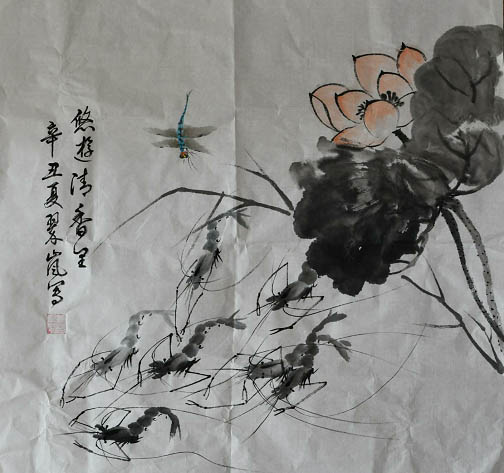 悠游清香里
辛丑夏翠嵐写